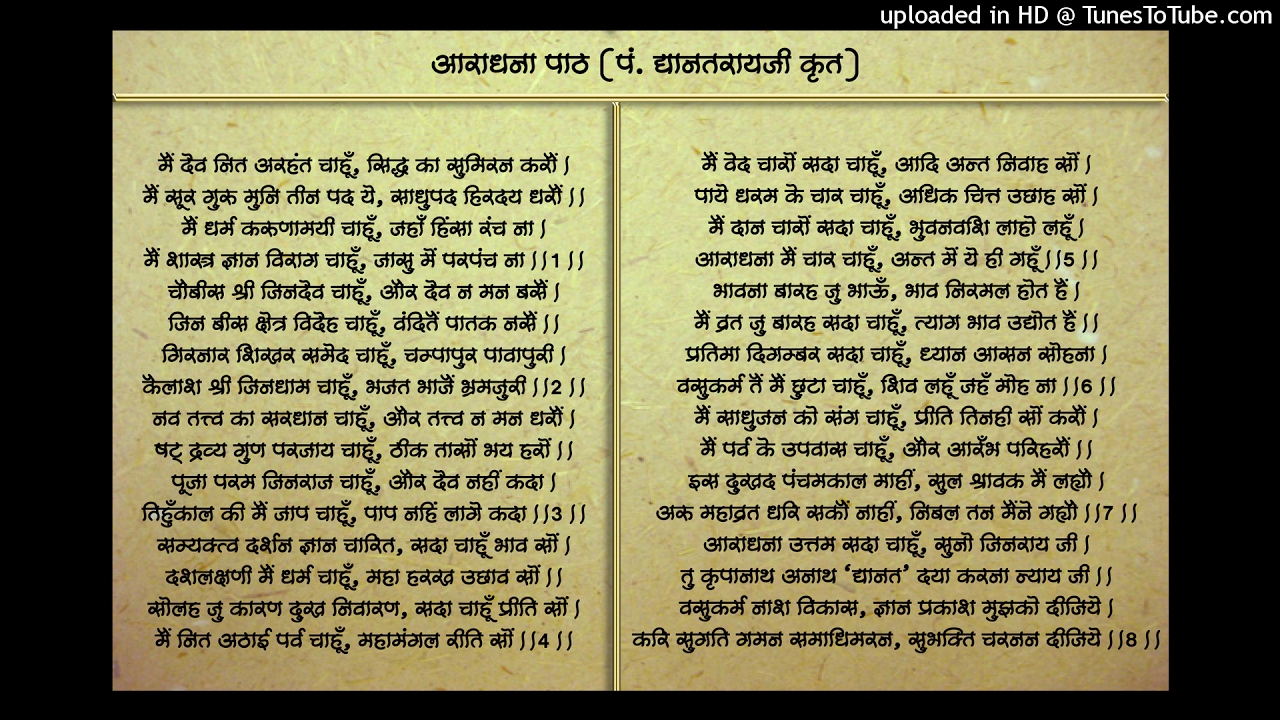 uploaded in HD @ TunesToTube.com
आराधना पाठ (पं. द्यानतरायजी कृत)
मैं देव नित अरहंत चाहूँ, सिद्ध का सुमिरन करौं ।
मैं सूर गुरु मुनि तीन पद ये, साधुपद हिरदय धरौं ।।
मैं धर्म करुणामयी चाहूँ, जहाँ हिंसा रंच ना ।
मैं शास्त्र ज्ञान विराग चाहूँ, जासु में परपंच ना ।।1 ।।
चौबीस श्री जिनदेव चाहूँ, और देव न मन बसैं ।
जिन बीस क्षेत्र विदेह चाहूँ, वंदितैं पातक नसैं ।।
गिरनार शिखर समेद चाहूँ, चम्पापुर पावापुरी ।
कैलाश श्री जिनधाम चाहूँ, भजत भाजैं भ्रमजुरी ।।2 ।।
नव तत्त्व का सरधान चाहूँ, और तत्त्व न मन धरौं ।
षट् द्रव्य गुण परजाय चाहूँ, ठीक तासों भय हरों ।।
पूजा परम जिनराज चाहूँ, और देव नहीं कदा ।
तिहुँकाल की मैं जाप चाहूँ, पाप नहिं लागे कदा ।।3 ।।
सम्यक्त्व दर्शन ज्ञान चारित, सदा चाहूँ भाव सों ।
दशलक्षणी मैं धर्म चाहूँ, महा हरख उछाव सों ।।
सोलह जु कारण दुख निवारण, सदा चाहूँ प्रीति सों ।
मैं नित अठाई पर्व चाहूँ, महामंगल रीति सों ।।4 ।।
मैं वेद चारों सदा चाहूँ, आदि अन्त निवाह सों ।
पाये धरम के चार चाहूँ, अधिक चित्त उछाह सों ।
मैं दान चारों सदा चाहूँ, भुवनवशि लाहो लहूँ ।
आराधना मैं चार चाहूँ, अन्त में ये ही गहूँ ।।5 ।।
भावना बारह जु भाऊँ, भाव निरमल होत हैं ।
मैं व्रत जु बारह सदा चाहूँ, त्याग भाव उद्योत हैं ।।
प्रतिमा दिगम्बर सदा चाहूँ, ध्यान आसन सोहना ।
वसुकर्म तैं मैं छुटा चाहूँ, शिव लहूँ जहँ मोह ना ।।6 ।।
मैं साधुजन को संग चाहूँ, प्रीति तिनहीं सों करौं ।
मैं पर्व के उपवास चाहूँ, और आरँभ परिहरौं ।।
इस दुखद पंचमकाल माहीं, सुल श्रावक मैं लह्यौ ।
अरु महाव्रत धरि सकौं नाहीं, निबल तन मैंने गह्यौ ।।7 ।।
आराधना उत्तम सदा चाहूँ, सुनो जिनराय जी ।
तु कृपानाथ अनाथ ‘द्यानत’ दया करना न्याय जी ।।
वसुकर्म नाश विकास, ज्ञान प्रकाश मुझको दीजिये ।
करि सुगति गमन समाधिमरन, सुभक्ति चरनन दीजिये ।।8 ।।